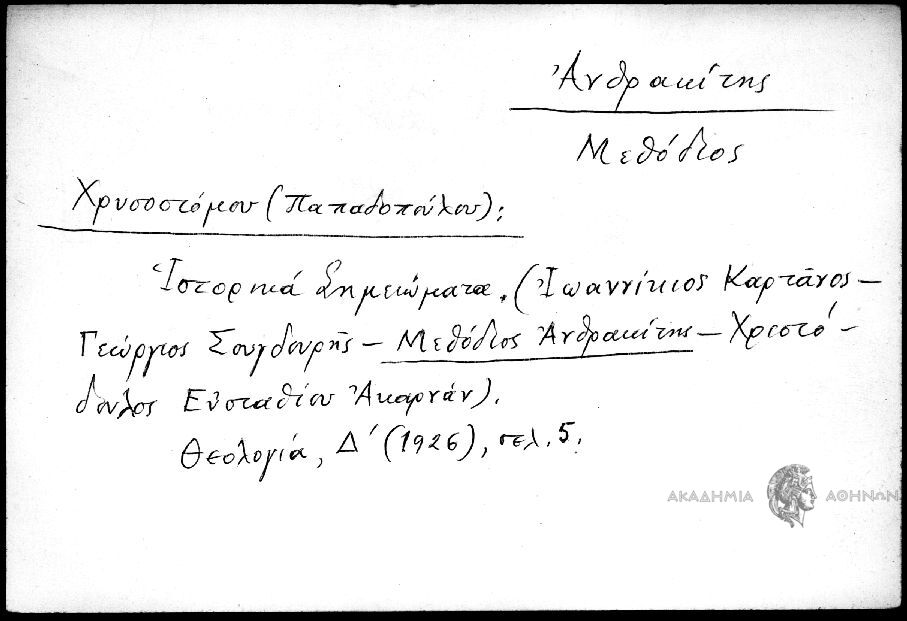 Ἀνθρακίτης
Μεθόδιος
Χρυσοστόμου (Παπαδοπούλου):
Ἱστορικά Σημειώματα. (Ἰωαννίκιος Καρτᾶνος –
Γεώργιος Σουγδουρῆς – Μεθόδιος Ἀνθρακίτης – Χριστό-
δουλος Εὐσταθίου Ἀκαρνάν).
Θεολογία, Δ΄ (1926), σελ. 5.
ΑΚΑΔΗΜΙΑ ΑΘΗΝΩΝ